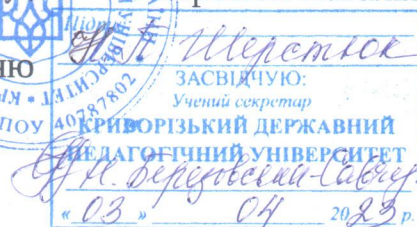 Підпис
Н. П. Шерстюк
НЮ
ЗАСВІДЧУЮ:
Учений секретар
КРИВОРІЗЬКИЙ ДЕРЖАВНИЙ
ПЕДАГОГІЧНИЙ УНІВЕРСИТЕТ
Н. Березовська-Савчук
« 03 » 04 2023 р.
УНІВЕРСИТЕТ
ПОУ 40787802